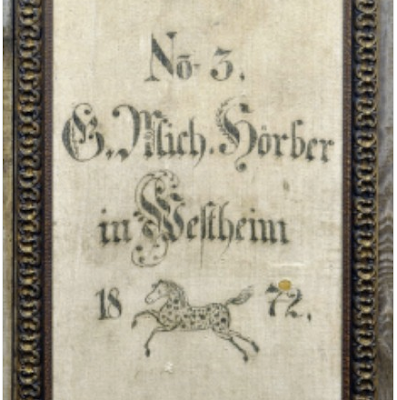 No- 3.
G. Mich. Hörber
in Westheim
18 72.